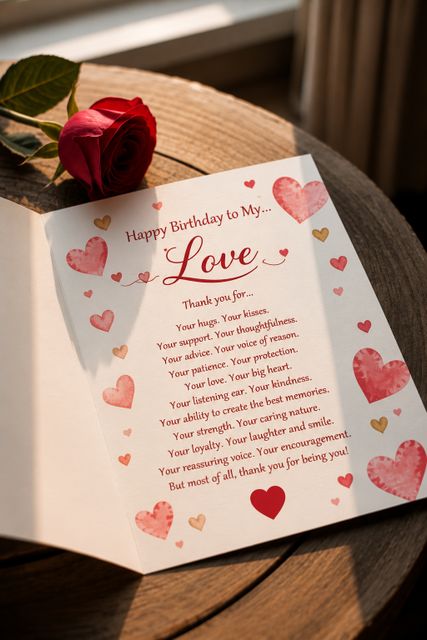 Happy Birthday to My...
Love
Thank you for...
Your hugs. Your kisses.
Your support. Your thoughtfulness.
Your advice. Your voice of reason.
Your patience. Your protection.
Your love. Your big heart.
Your listening ear. Your kindness.
Your ability to create the best memories.
Your strength. Your caring nature.
Your loyalty. Your laughter and smile.
Your reassuring voice. Your encouragement.
But most of all, thank you for being you!